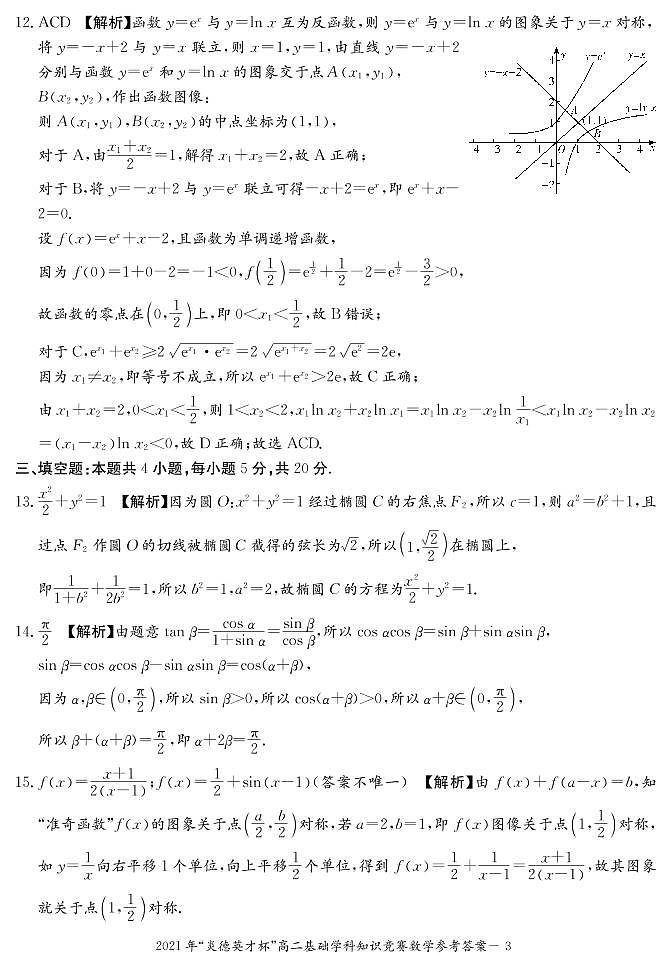 12. ACD 【解析】函数 y=eˣ 与 y=ln x 互为反函数,则 y=eˣ 与 y=ln x 的图象关于 y=x 对称,
将 y=-x+2 与 y=x 联立,则 x=1,y=1,由直线 y=-x+2
分别与函数 y=eˣ 和 y=ln x 的图象交于点 A(x₁,y₁),
B(x₂,y₂),作出函数图像:
则 A(x₁,y₁),B(x₂,y₂)的中点坐标为(1,1),
对于 A,由(x₁+x₂)/2=1,解得 x₁+x₂=2,故 A 正确;
对于 B,将 y=-x+2 与 y=eˣ 联立可得-x+2=eˣ,即 eˣ+x-
2=0.
设 f(x)=eˣ+x-2,且函数为单调递增函数,
因为 f(0)=1+0-2=-1<0,f(1/2)=e^(1/2)+1/2-2=e^(1/2)-3/2>0,
故函数的零点在(0,1/2)上,即 0<x₁<1/2,故 B 错误;
对于 C,e^(x₁)+e^(x₂)≥2√(e^(x₁)·e^(x₂))=2√(e^(x₁+x₂))=2√(e²)=2e,
因为 x₁≠x₂,即等号不成立,所以 e^(x₁)+e^(x₂)>2e,故 C 正确;
由 x₁+x₂=2,0<x₁<1/2,则 1<x₂<2,x₁ln x₂+x₂ln x₁=x₁ln x₂-x₂ln 1/x₁<x₁ln x₂-x₂ln x₂
=(x₁-x₂)ln x₂<0,故 D 正确;故选 ACD.
三、填空题:本题共 4 小题,每小题 5 分,共 20 分.
13. x²/2+y²=1 【解析】因为圆 O:x²+y²=1 经过椭圆 C 的右焦点 F₂,所以 c=1,则 a²=b²+1,且
过点 F₂ 作圆 O 的切线被椭圆 C 截得的弦长为√2,所以(1,√2/2)在椭圆上,
即1/(1+b²)+1/(2b²)=1,所以 b²=1,a²=2,故椭圆 C 的方程为x²/2+y²=1.
14. π/2 【解析】由题意 tan β=cos α/(1+sin α)=sin β/cos β,所以 cos αcos β=sin β+sin αsin β,
sin β=cos αcos β-sin αsin β=cos(α+β),
因为 α,β∈(0,π/2),所以 sin β>0,所以 cos(α+β)>0,所以 α+β∈(0,π/2),
所以 β+(α+β)=π/2,即 α+2β=π/2.
15. f(x)=(x+1)/(2(x-1));f(x)=1/2+sin(x-1)(答案不唯一) 【解析】由 f(x)+f(a-x)=b,知
“准奇函数”f(x)的图象关于点(a/2,b/2)对称,若 a=2,b=1,即 f(x)图像关于点(1,1/2)对称,
如 y=1/x向右平移 1 个单位,向上平移1/2个单位,得到 f(x)=1/2+1/(x-1)=(x+1)/(2(x-1)),故其图象
就关于点(1,1/2)对称.
2021 年“炎德英才杯”高二基础学科知识竞赛数学参考答案- 3